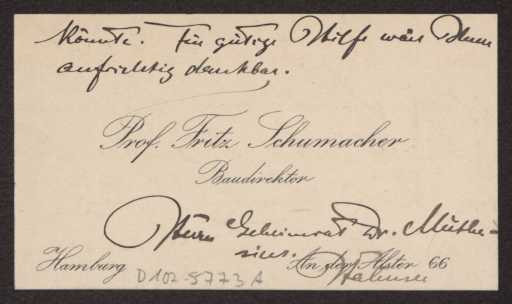 könnte. Für gütige Hilfe wäre Ihnen
aufrichtig dankbar.
Prof. Fritz Schumacher
Baudirektor
Herrn Geheimrat Dr. Muthe-
sius.
Hamburg
An der Alster 66
D102-5773 A